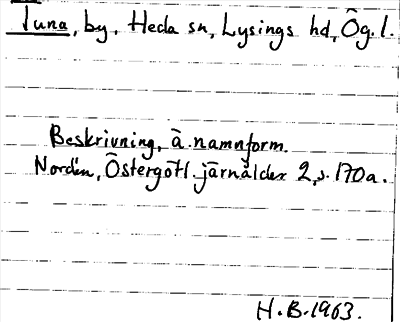 Tuna, by, Heda sn, Lysings hd, Ög. l.
Beskrivning, ä. namnform.
Nordén, Östergötl. järnålder 2, s. 170a.
H.B. 1963.